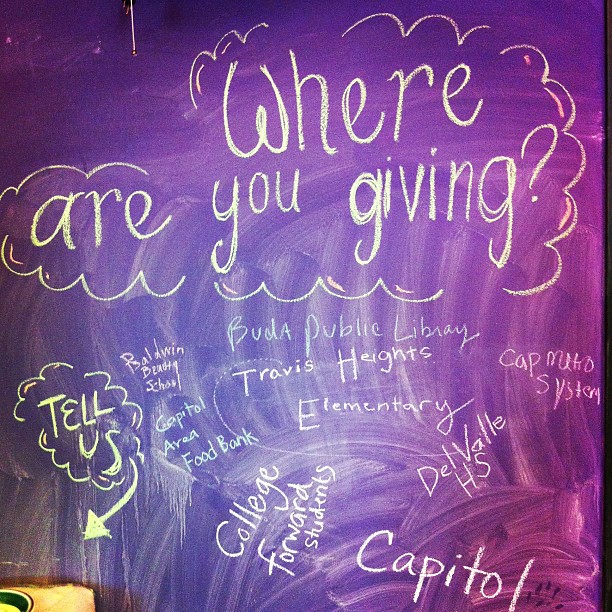 Where
are you giving?
Buda Public Library
Baldwin
Beauty
School
Travis Heights
Elementary
Cap Metro
System
TELL
US
Capitol
Area
Food Bank
Del Valle
HS
College
Forward
students
Capitol